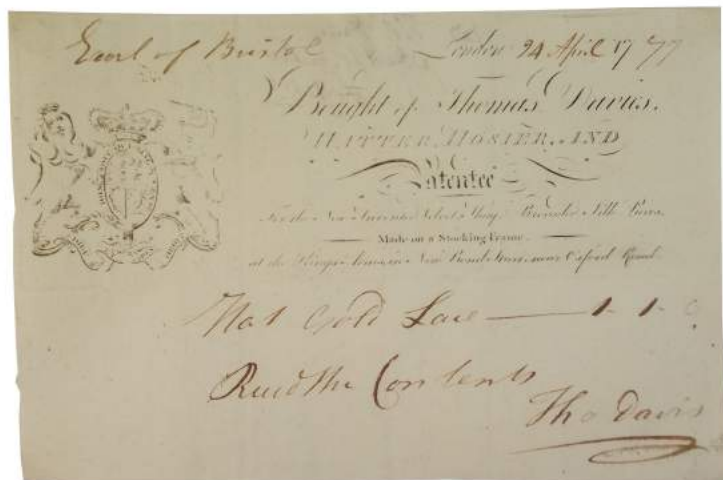 Earl of Bristol London 24 April 1777
Bought of Thomas Davies,
HATTER, HOSIER, AND
Patentee
For the New Invented Velvet Shag, Brocade Silk Pieces,
Made on a Stocking Frame,
at the Kings Arms in New Bond Street near Oxford Road.
Hat Gold Lace — 1 - 1 - 0
Recd the Contents
Tho Davis